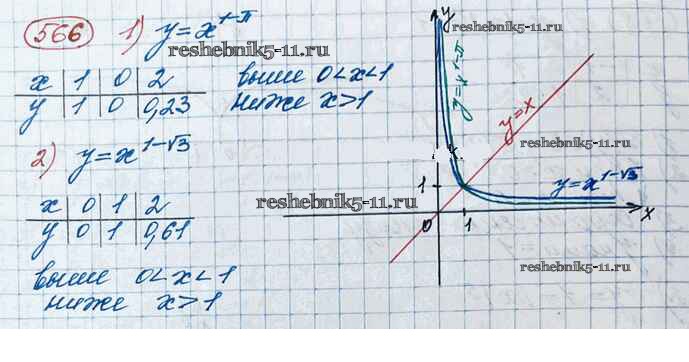 566 1) y = x^{1-π}
reshebnik5-11.ru
x | 1 | 0 | 2
y | 1 | 0 | 0,23
выше 0<x<1
ниже x>1
2) y = x^{1-√3}
x | 0 | 1 | 2
y | 0 | 1 | 0,61
reshebnik5-11.ru
выше 0<x<1
ниже x>1
y
y = x^{1-π}
y = x
reshebnik5-11.ru
1
y = x^{1-√3}
0
1
x
reshebnik5-11.ru